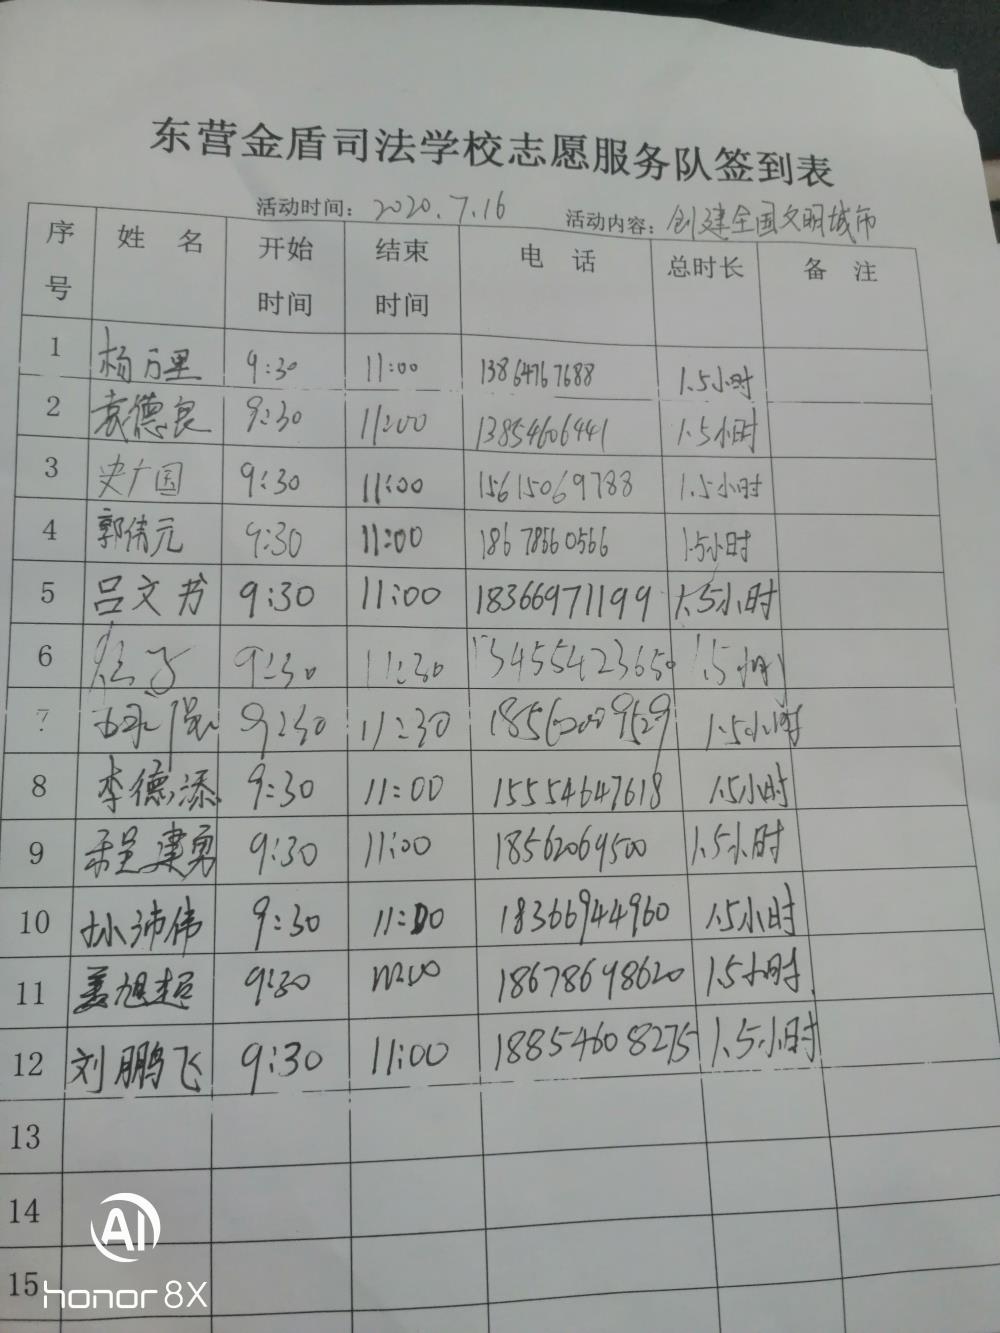 东营金盾司法学校志愿服务队签到表
活动时间：2020.7.16 活动内容：创建全国文明城市
序号 姓名 开始时间 结束时间 电话 总时长 备注
1 杨万里 9:30 11:00 13864767688 1.5小时
2 袁德良 9:30 11:00 13854606441 1.5小时
3 史广国 9:30 11:00 15615069788 1.5小时
4 郭伟元 9:30 11:00 18678560566 1.5小时
5 吕文书 9:30 11:00 18366971199 1.5小时
6 9:30 11:30 13455423650 1.5小时
7 9:30 11:30 1.5小时
8 李德添 9:30 11:00 15554647618 1.5小时
9 程建勇 9:30 11:00 18562069500 1.5小时
10 孙沛伟 9:30 11:00 18366944960 1.5小时
11 姜旭超 9:30 11:00 18678698620 1.5小时
12 刘鹏飞 9:30 11:00 18854608275 1.5小时
13
14
15
AI
honor 8X